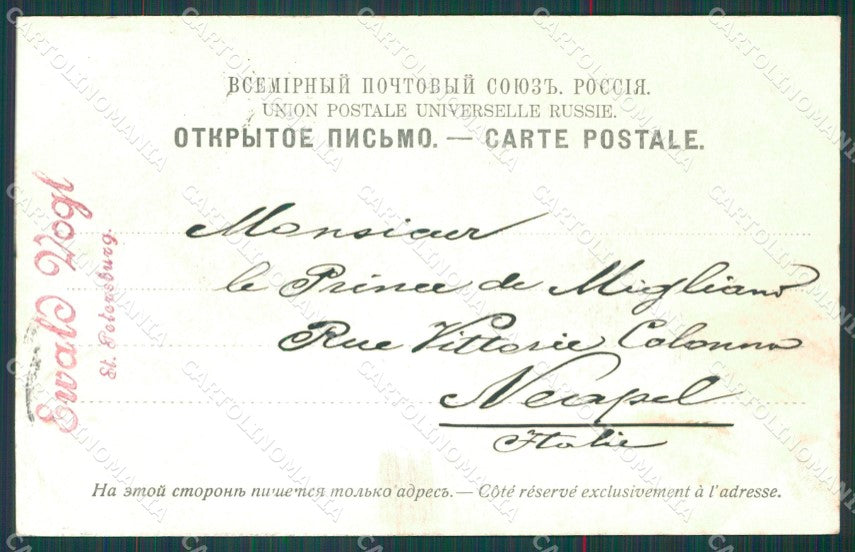 ВСЕМІРНЫЙ ПОЧТОВЫЙ СОЮЗЪ. РОССІЯ.
UNION POSTALE UNIVERSELLE RUSSIE.
ОТКРЫТОЕ ПИСЬМО. — CARTE POSTALE.
Ewald Vogl
St. Petersburg.
Monsieur
le Prince de Migliano
Rue Vittorie Colonna
Neapel
Italie
На этой сторонѣ пишется только адресъ. — Côté réservé exclusivement à l'adresse.
CARTOLINOMANIA